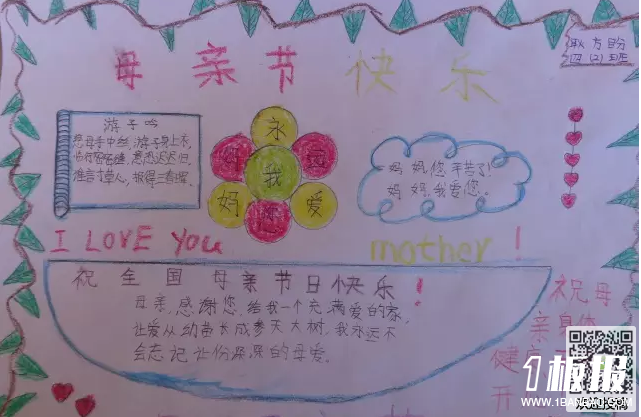 母亲节快乐
四(2)班
游子吟
慈母手中线,游子身上衣,
临行密密缝,意恐迟迟归,
谁言寸草心,报得三春晖。
永
我
妈
爱
妈妈,您辛苦了!
妈妈,我爱您。
I LOVE You mother!
祝全国母亲节日快乐!
母亲,感谢您,给我一个充满爱的家,
让爱从幼苗长成参天大树,我永远不
会忘记让份深深的母爱。
祝母
亲身体
健
开
1板报
WWW.1BANBAO.COM
欢迎投稿